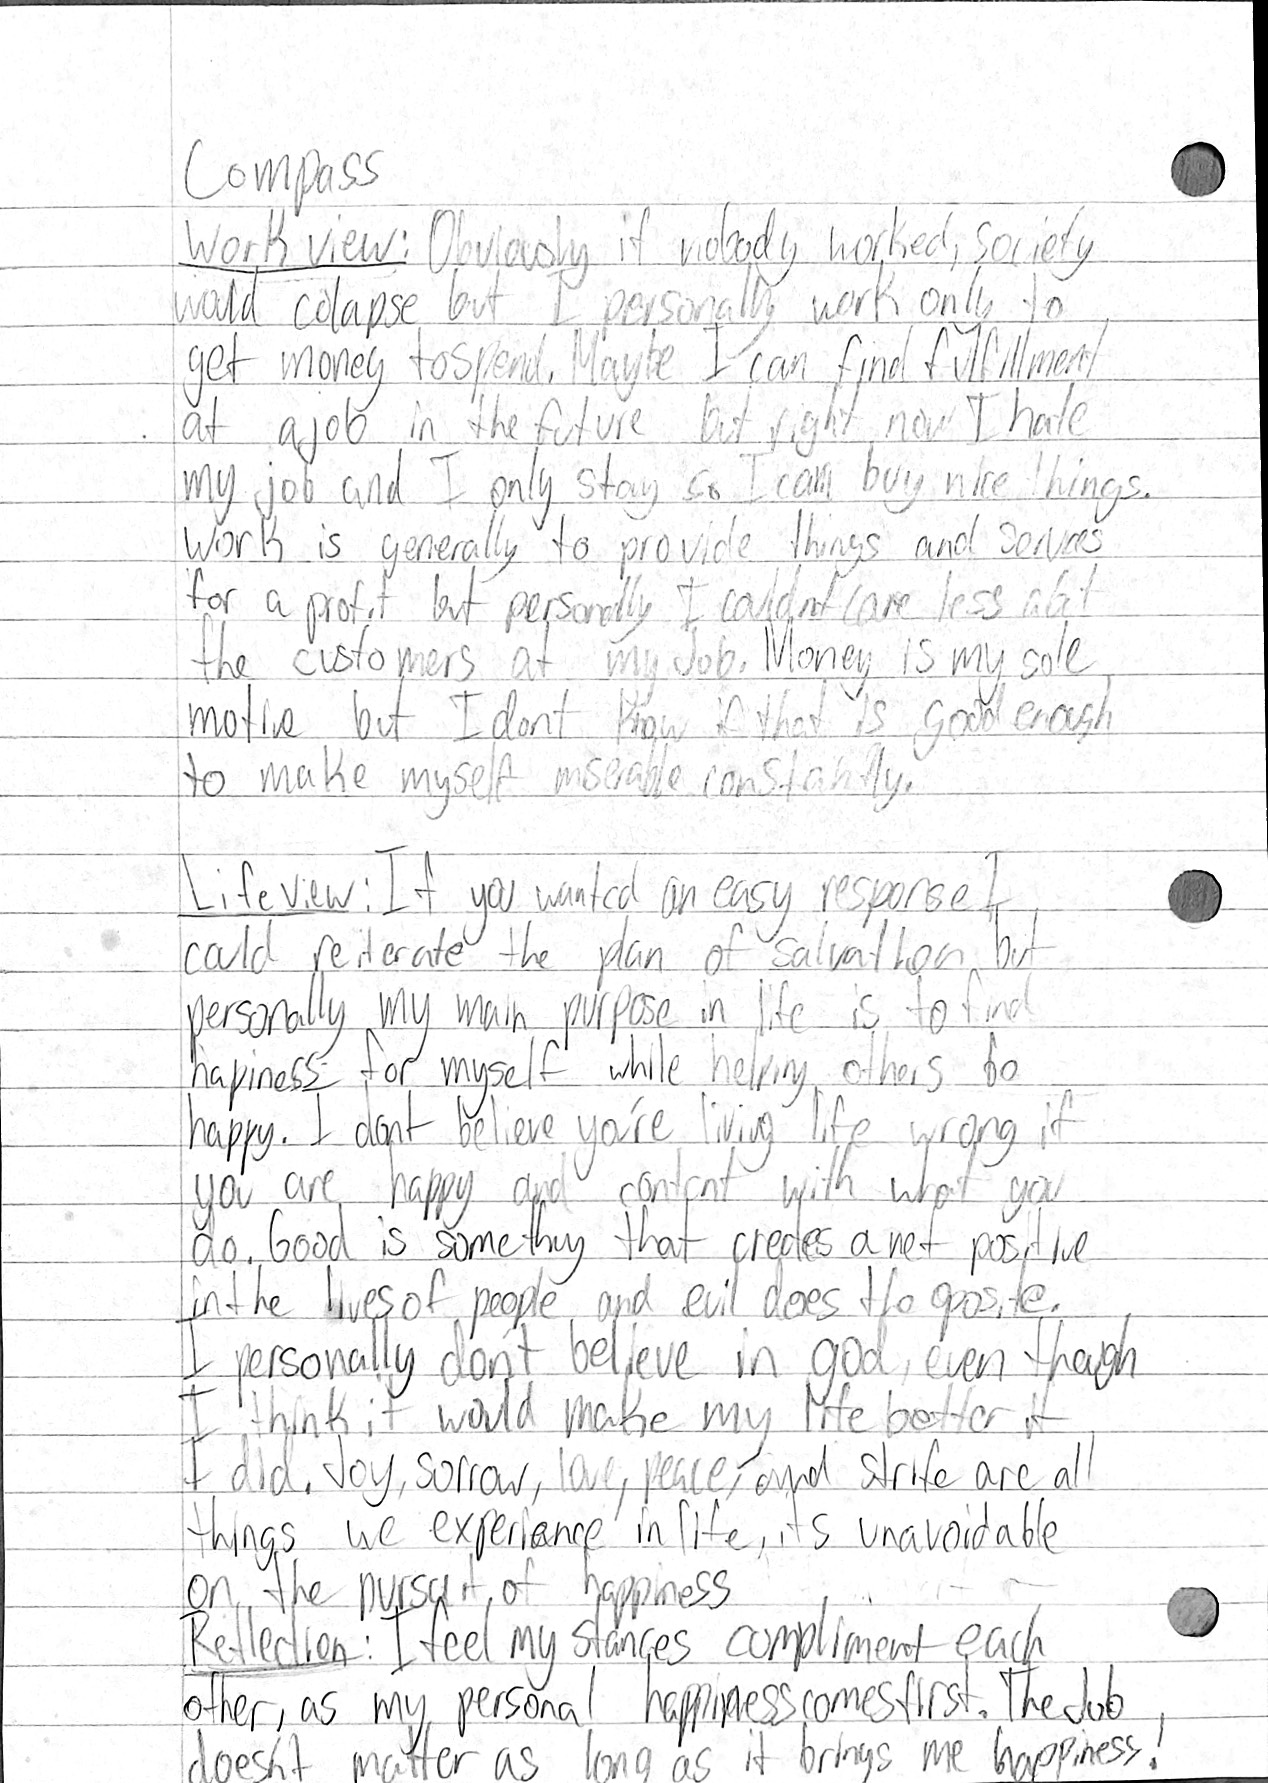 Compass
Work view: Obviously if nobody worked, society
would colapse but I personally work only to
get money to spend. Maybe I can find fulfillment
at a job in the future but right now I hate
my job and I only stay so I can buy nice things.
Work is generally to provide things and services
for a profit but personally I couldnt care less abt
the customers at my Job. Money is my sole
motive but I dont know if that is good enough
to make myself miserable constantly.
Life view: If you wanted an easy response I
could reiterate the plan of salvation but
personally my main purpose in life is to find
hapiness for myself while helping others to
happy. I dont believe you're living life wrong if
you are happy and content with what you
do. Good is something that creates a net positive
in the lives of people and evil does the oposite.
I personally don't believe in god, even though
I think it would make my life better if
I did. Joy, sorrow, love, peace, and strife are all
things we experience in life, its unavoidable
on the pursuit of happiness
Reflection: I feel my stances compliment each
other, as my personal happiness comes first. The Job
doesn't matter as long as it brings me happiness!